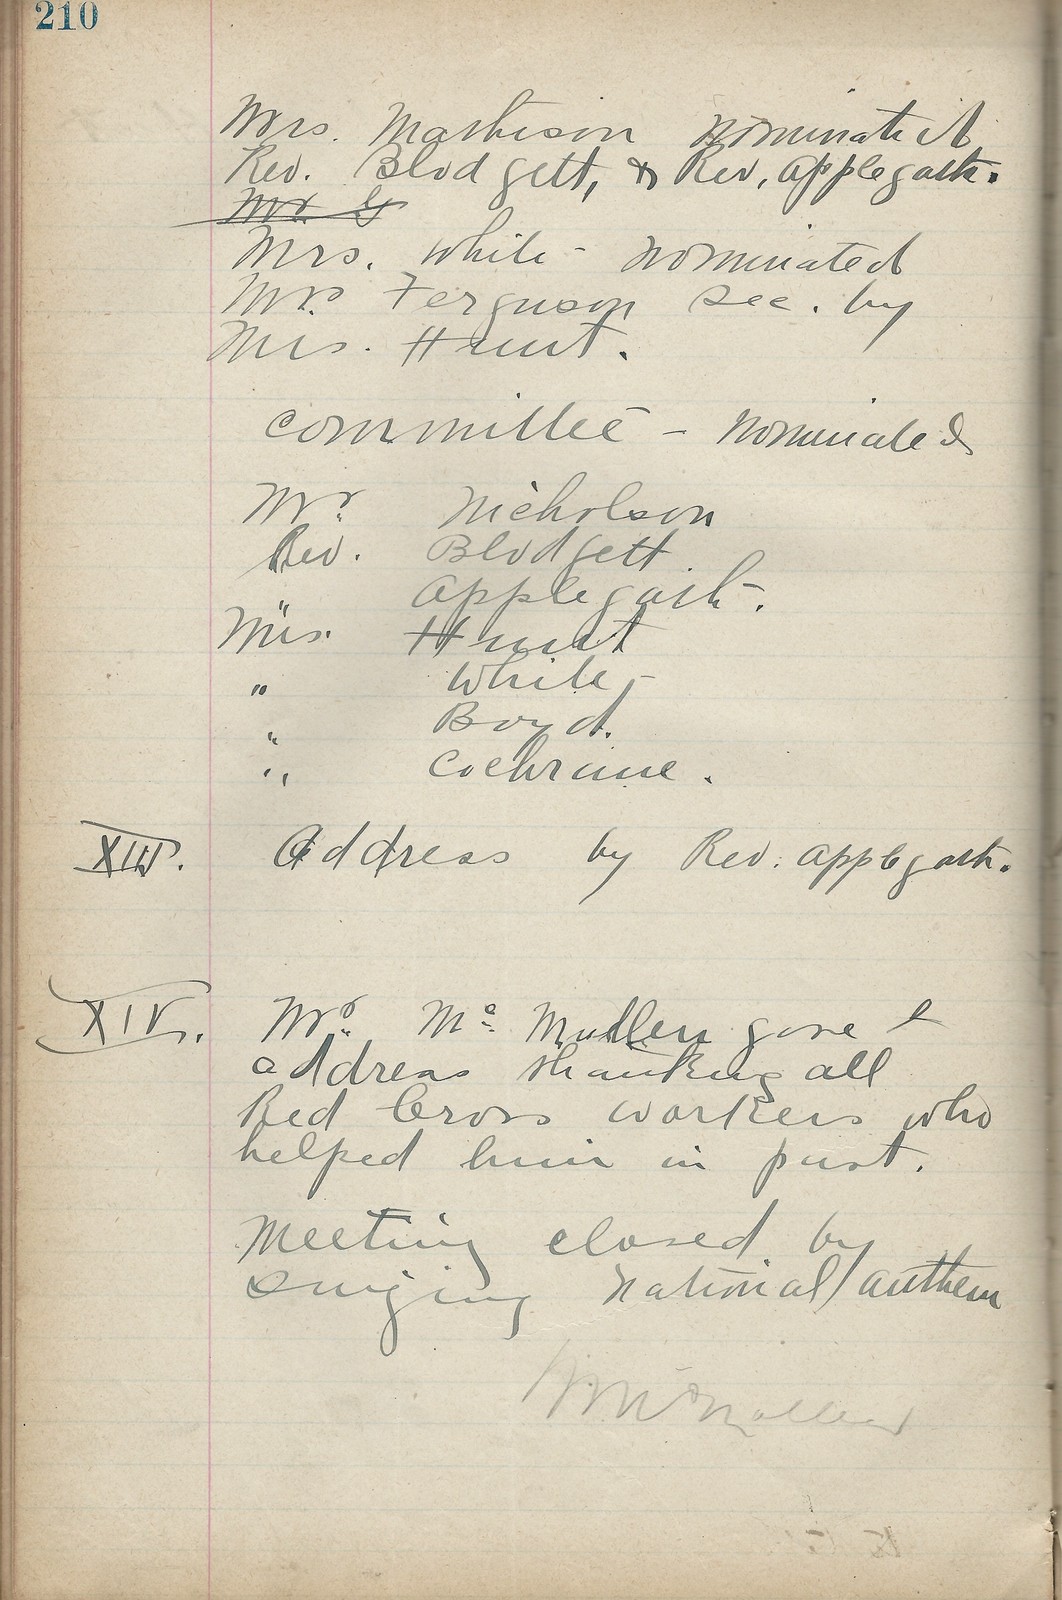 210
Mrs. Mathison nominated
Rev. Blodgett, & Rev. Applegath.
Mr. G
Mrs. White - nominated
Mr. Ferguson sec. by
Mrs. Hunt.
Committee - nominated
Mr. Nicholson
Rev. Blodgett
" Applegath.
Mrs. Hunt
" White -
" Boyd.
" Cochrane.
XIII. Address by Rev. Applegath.
XIV. Mr. Mc Mullen gave
address thanking all
Red Cross workers who
helped him in past.
Meeting closed by
singing national anthem
McMullen